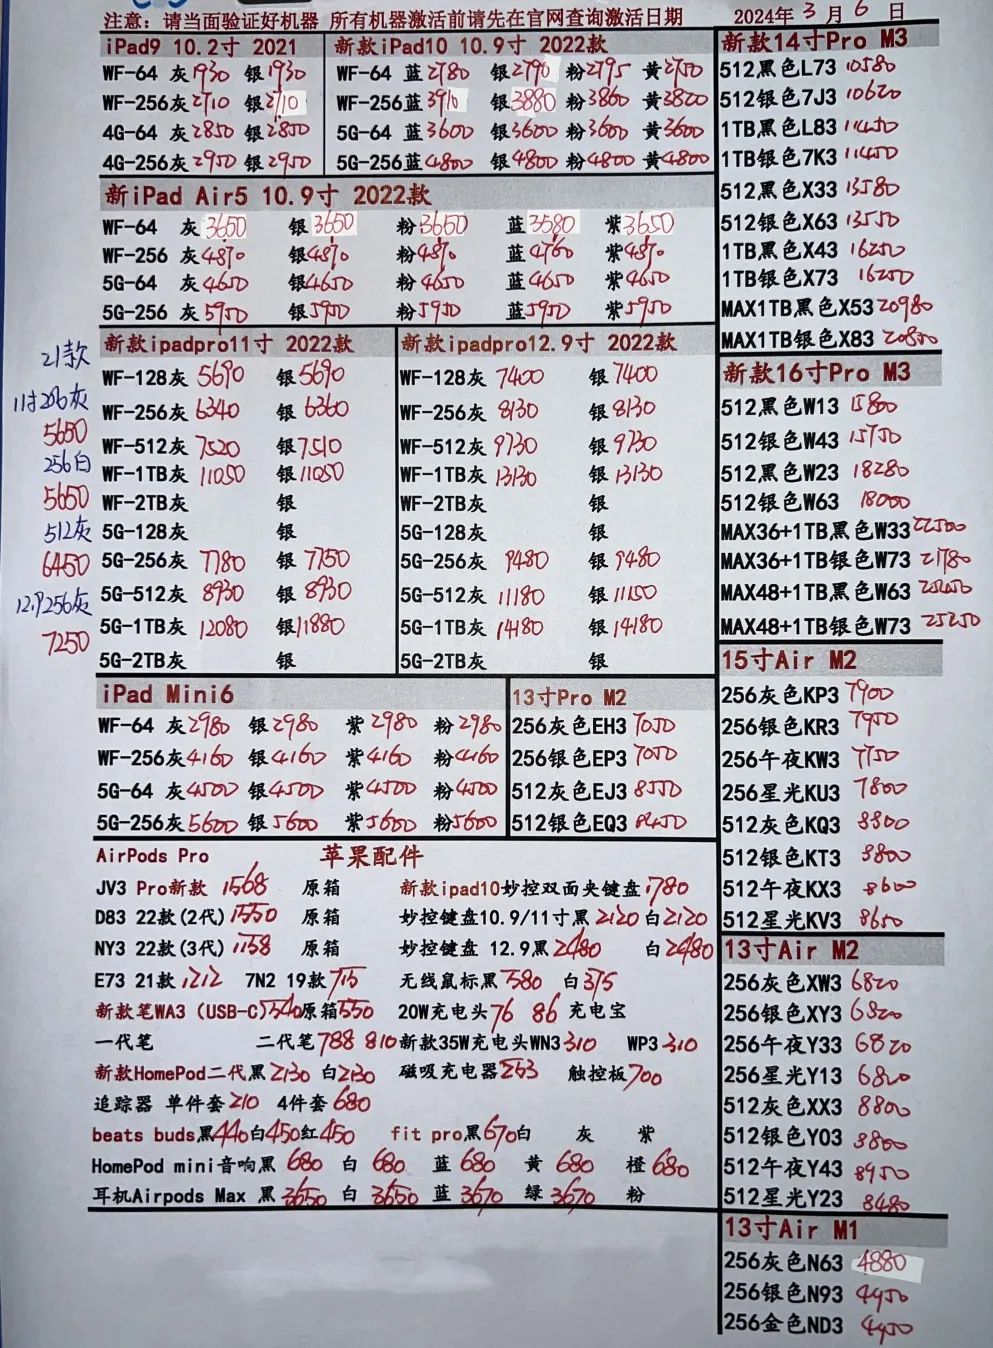 注意：请当面验证好机器 所有机器激活前请先在官网查询激活日期
2024年 3 月 6 日
iPad9 10.2寸 2021
WF-64 灰1930 银1930
WF-256灰2710 银2710
4G-64 灰2850 银2850
4G-256灰2950 银2950
新款iPad10 10.9寸 2022款
WF-64 蓝2780 银2790 粉2795 黄2750
WF-256蓝3910 银3880 粉3860 黄3820
5G-64 蓝3600 银3600 粉3600 黄3600
5G-256蓝4800 银4800 粉4800 黄4800
新iPad Air5 10.9寸 2022款
WF-64 灰3650 银3650 粉3650 蓝3580 紫3650
WF-256 灰4870 银4870 粉4870 蓝4760 紫4870
5G-64 灰4650 银4650 粉4650 蓝4650 紫4650
5G-256 灰5950 银5950 粉5950 蓝5950 紫5950
21款
11寸256灰
5650
256白
5650
512灰
6450
12.9256灰
7250
新款ipadpro11寸 2022款
WF-128灰 5690 银5690
WF-256灰 6340 银6360
WF-512灰 7520 银7510
WF-1TB灰 11050 银11050
WF-2TB灰 银
5G-128灰 银
5G-256灰 7780 银 7750
5G-512灰 8930 银 8930
5G-1TB灰 12080 银11880
5G-2TB灰 银
新款ipadpro12.9寸 2022款
WF-128灰 7400 银7400
WF-256灰 8130 银8130
WF-512灰 9730 银9730
WF-1TB灰 13130 银13130
WF-2TB灰 银
5G-128灰 银
5G-256灰 9480 银9480
5G-512灰 11180 银11150
5G-1TB灰 14180 银14180
5G-2TB灰 银
iPad Mini6
WF-64 灰2980 银2980 紫2980 粉2980
WF-256灰4160 银4160 紫4160 粉4160
5G-64 灰4500 银4500 紫4500 粉4500
5G-256灰5600 银5600 紫5600 粉5600
13寸Pro M2
256灰色EH3 7050
256银色EP3 7050
512灰色EJ3 8550
512银色EQ3 8450
AirPods Pro 苹果配件
JV3 Pro新款 1568 原箱 新款ipad10妙控双面夹键盘1780
D83 22款(2代)1550 原箱 妙控键盘10.9/11寸黑2120 白2120
NY3 22款(3代)1158 原箱 妙控键盘 12.9黑2480 白2480
E73 21款1212 7N2 19款715 无线鼠标黑580 白375
新款笔WA3 (USB-C)540原箱550 20W充电头76 86 充电宝
一代笔 二代笔788 810新款35W充电头WN3310 WP3310
新款HomePod二代黑2130 白2130 磁吸充电器253 触控板700
追踪器 单件套210 4件套680
beats buds黑440白450红450 fit pro黑670白 灰 紫
HomePod mini音响黑 680 白 680 蓝 680 黄 680 橙680
耳机Airpods Max 黑3650 白 3650 蓝 3670 绿 3670 粉
新款14寸Pro M3
512黑色L73 10580
512银色7J3 10620
1TB黑色L83 11450
1TB银色7K3 11450
512黑色X33 13580
512银色X63 13550
1TB黑色X43 16250
1TB银色X73 16250
MAX1TB黑色X53 20980
MAX1TB银色X83 20850
新款16寸Pro M3
512黑色W13 15800
512银色W43 15750
512黑色W23 18280
512银色W63 18000
MAX36+1TB黑色W33 22500
MAX36+1TB银色W73 21780
MAX48+1TB黑色W63
MAX48+1TB银色W73 25250
15寸Air M2
256灰色KP3 7900
256银色KR3 7950
256午夜KW3 7750
256星光KU3 7800
512灰色KQ3 8800
512银色KT3 8800
512午夜KX3 8600
512星光KV3 8650
13寸Air M2
256灰色XW3 6820
256银色XY3 6820
256午夜Y33 6820
256星光Y13 6820
512灰色XX3 8800
512银色Y03 8800
512午夜Y43 8950
512星光Y23 8480
13寸Air M1
256灰色N63 4880
256银色N93 4950
256金色ND3 4950